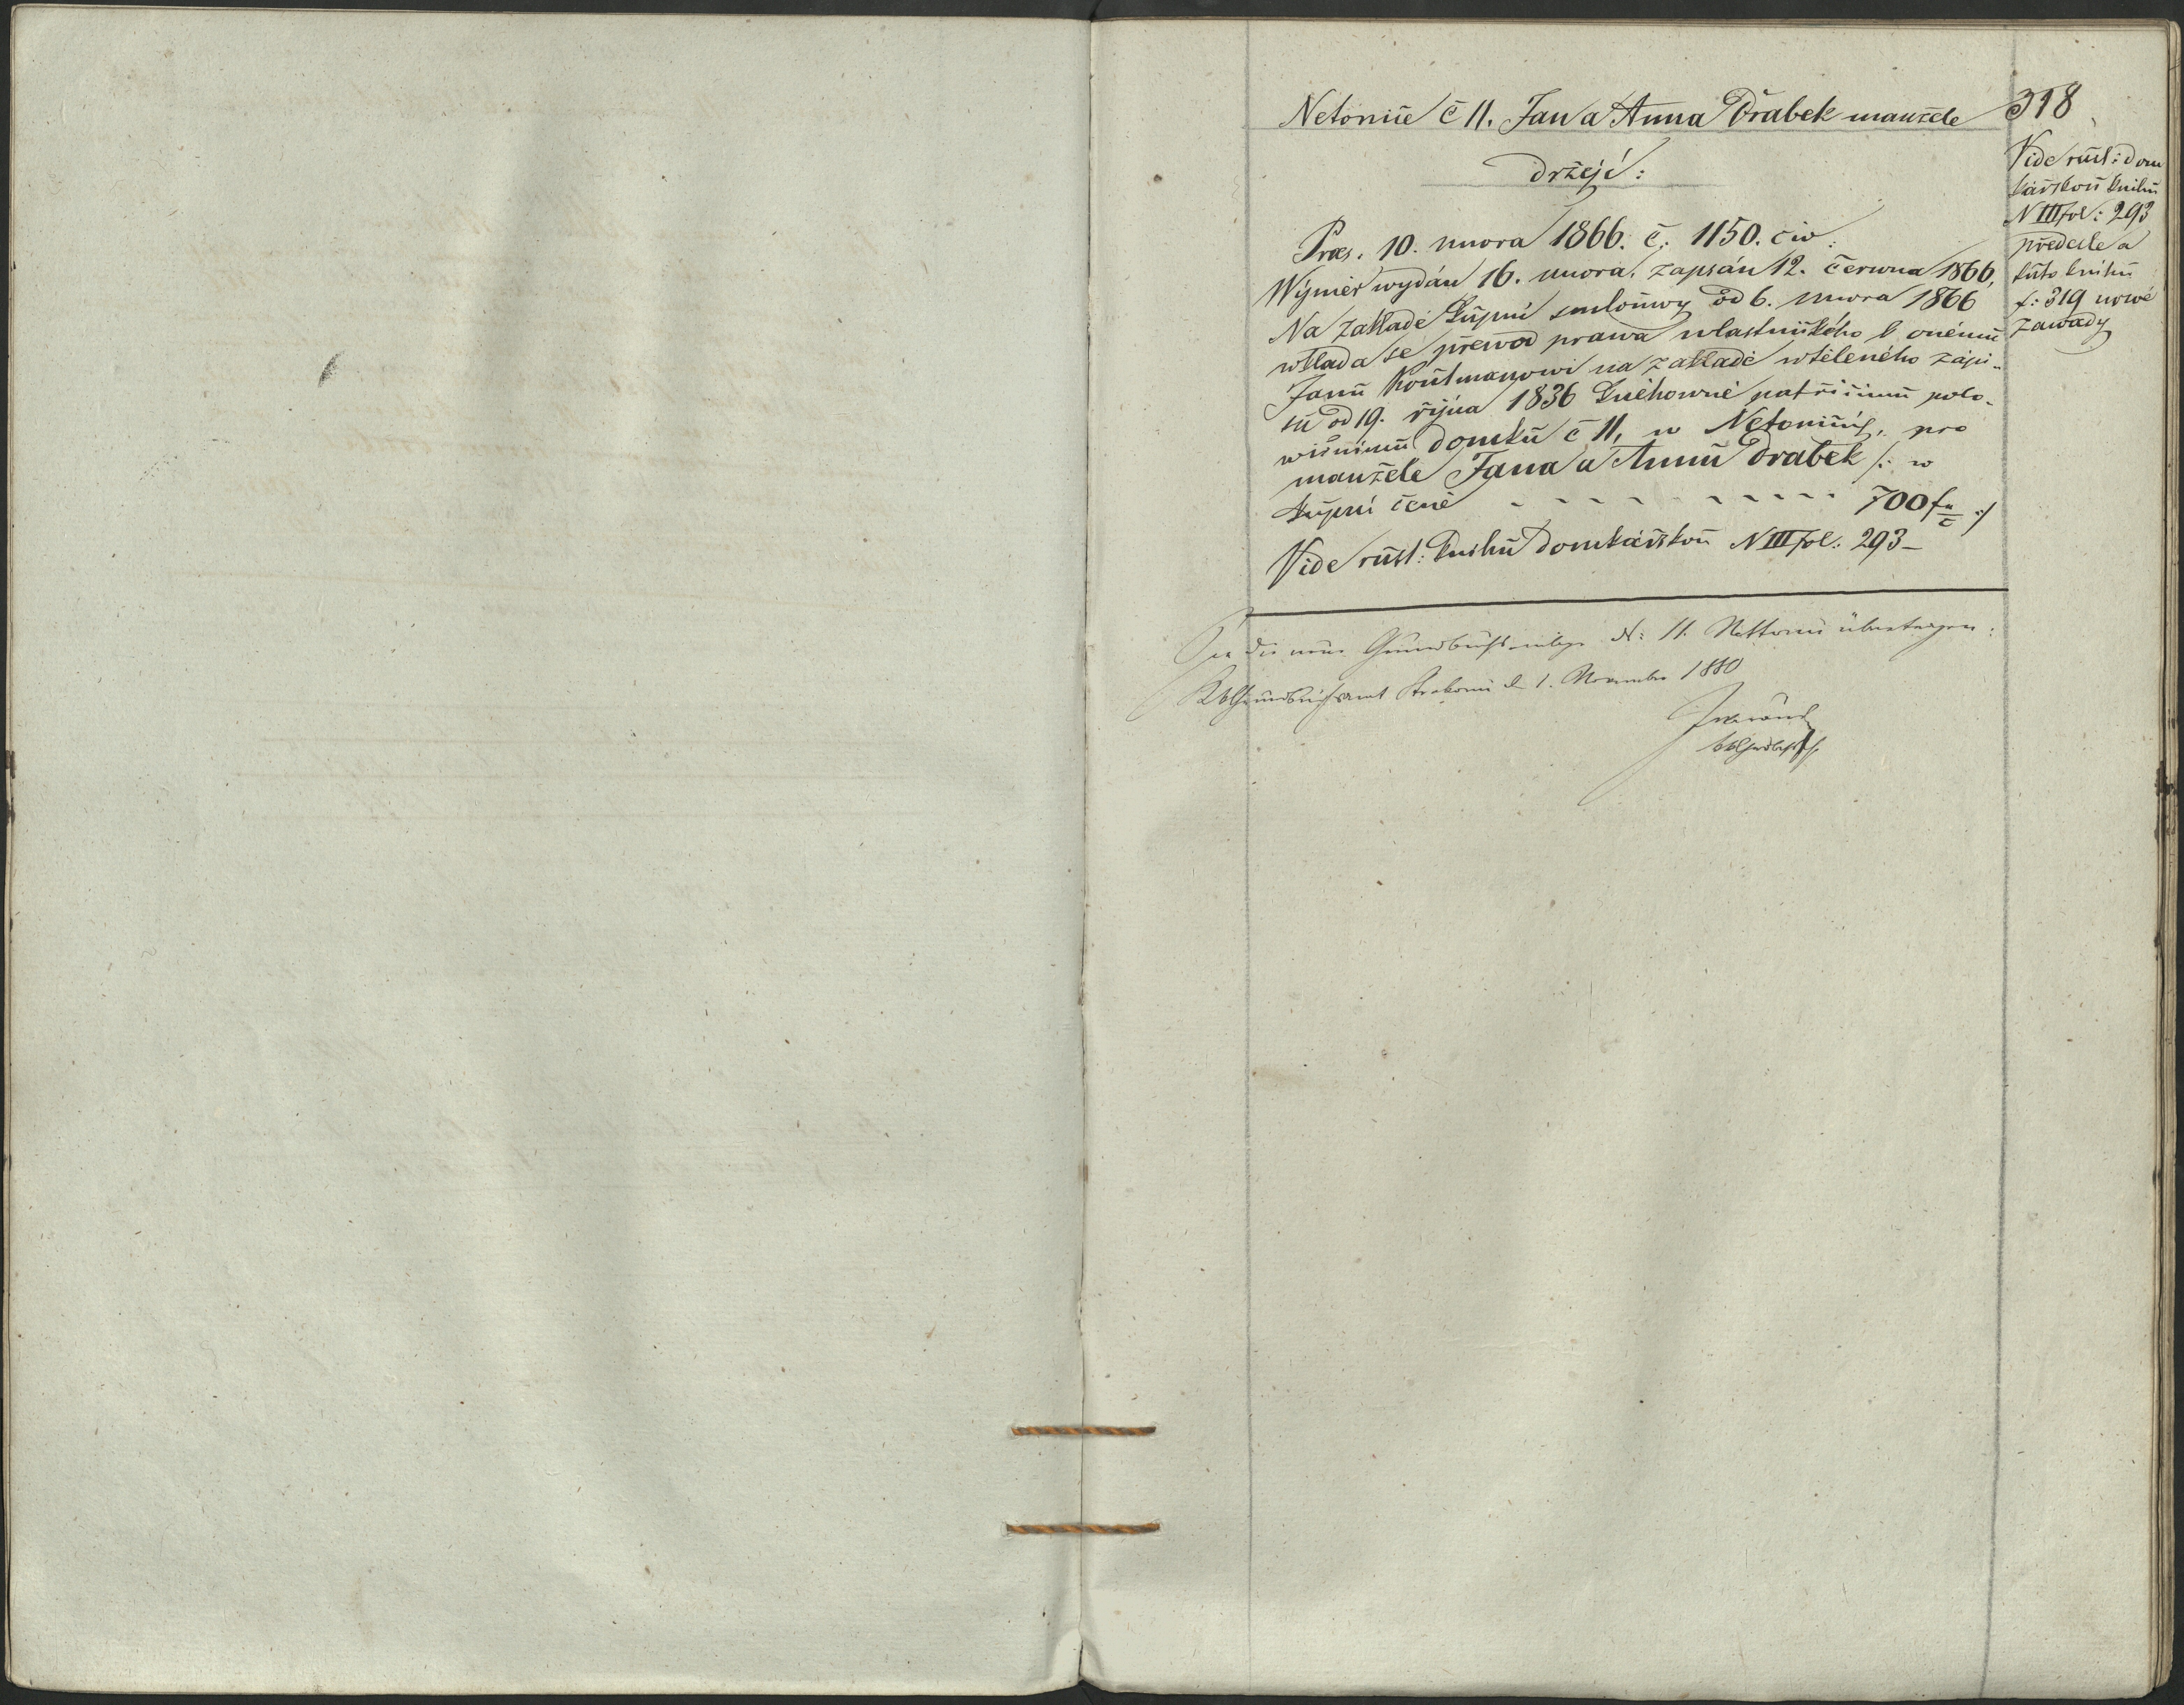 Netonice č 11. Jan a Anna Drabek manžele
318
držejí:
Præs. 10. unora 1866. č: 1150. civ.
Wýměr wydán 16. unora, zapsán 12. června 1866,
Na základě kupní smlouwy od 6. unora 1866
wkláda se přewod prawa wlastnického k onému
Janu Koutmanowi na základě wtěleného zápi-
su od 19. října 1836 knihowně patřicímu polo-
wičnímu domku č 11, w Netonicích, pro
manžele Jana a Annu Drabek /: w
kupní ceně - - - - - - - - - - 700 f :/
Vide rust: knihu domkářskou N III fol: 293 -
Vide rust: dom
kářskou knihu
N III fol: 293
předešle a
tuto knihu
f: 319 nowé
zawady
In die neue Grundbuchseinlage N: 11. Nettonic übertragen:
Grundbuchsamt Strakonic d 1. November 1880